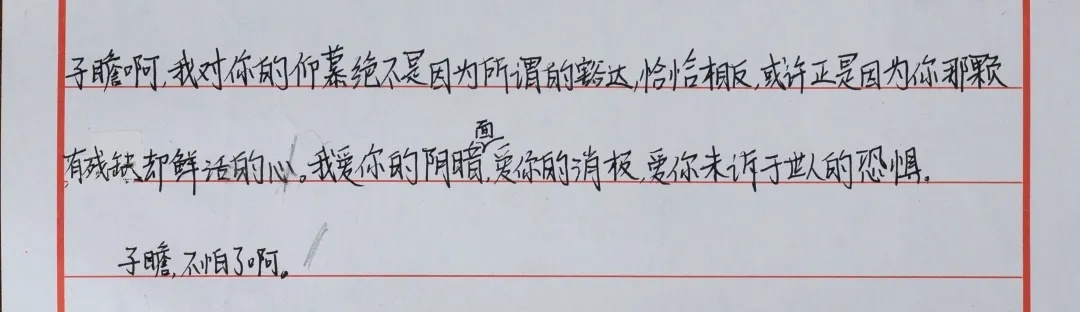 子瞻啊,我对你的仰慕绝不是因为所谓的豁达,恰恰相反,或许正是因为你那颗
有残缺却鲜活的心。我爱你的阴暗面,爱你的消极,爱你未诉于世人的恐惧。
子瞻,不怕了啊。